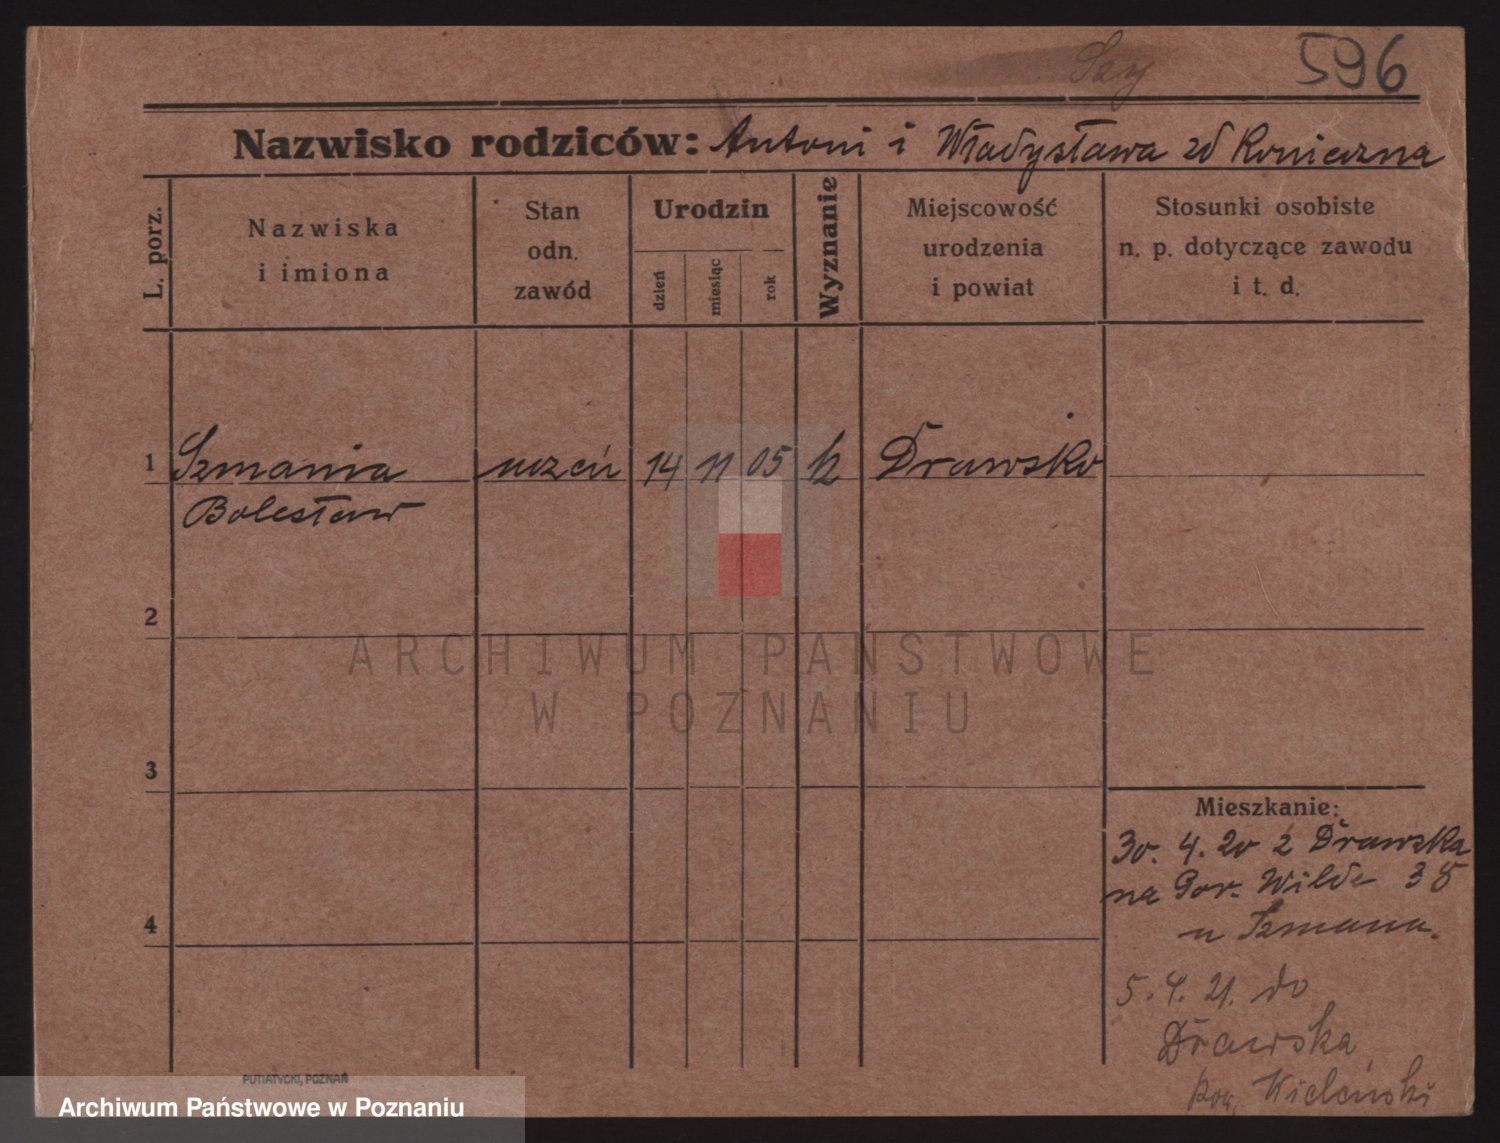 Szy
596
Nazwisko rodziców: Antoni i Władysława zd Konieczna
L. porz.
Nazwiska
i imiona
Stan
odn.
zawód
Urodzin
dzień
miesiąc
rok
Wyznanie
Miejscowość
urodzenia
i powiat
Stosunki osobiste
n. p. dotyczące zawodu
i t. d.
1 Szmania uczeń 14 11 05 k Drawsko
Bolesław
2
ARCHIWUM PAŃSTWOWE
W POZNANIU
3
Mieszkanie:
30. 4. 20 z Drawska
na Gór. Wilde 38
4
u Szmana.
5. 4. 21. do
Drawska
pow. Wieleński
PUTIATYCKI, POZNAŃ
Archiwum Państwowe w Poznaniu